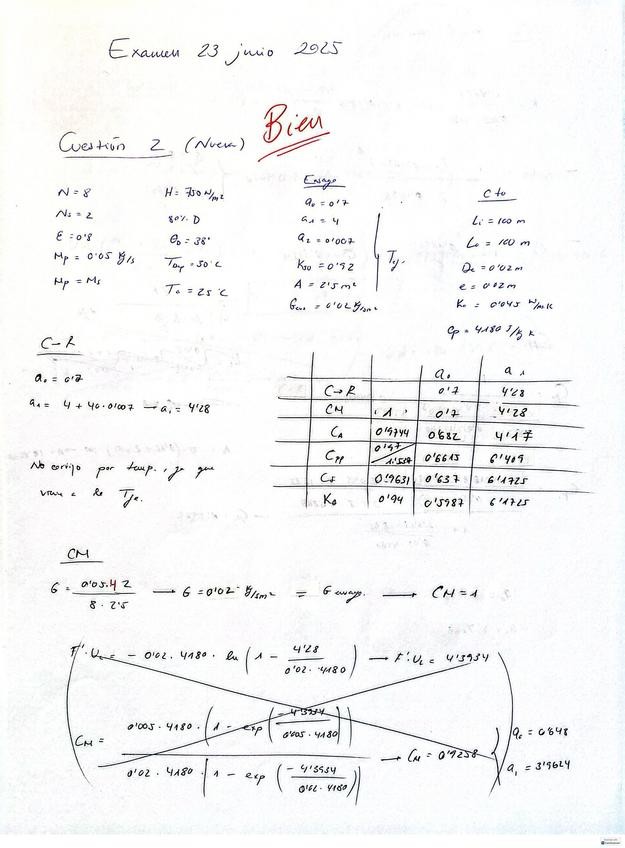 Examen 23 junio 2025
Bien
Cuestión 2 (Nueva)
N = 8
Ns = 2
ε = 0'8
Mp = 0'05 Kg/s
Mp = Ms
H = 750 W/m²
80% D
θ0 = 38°
T = 50°C
Ta = 25°C
Ensayo
a0 = 0'7
a1 = 4
a2 = 0'007
K50 = 0'92
A = 2'5 m²
G = 0'02 Kg/sm²
Tje.
Cto
Li = 100 m
Lo = 100 m
De = 0'02 m
e = 0'02 m
K = 0'045 W/mK
Cp = 4180 J/Kg K
C→R
a0 = 0'7
a1 = 4 + 40·0'007 → a1 = 4'28
No corrijo por temp., ya que
viene a la Tje.
a0 a1
C→R 0'7 4'28
CM 1 0'7 4'28
CA 0'9744 0'682 4'17
Cpp 0'97 / 1'537 0'6615 6'409
Cf 0'9631 0'637 6'1725
Kθ 0'94 0'5987 6'1725
CM
G = 0'05·4 2 / 8·2'5 → G = 0'02 Kg/sm² = G ensayo. → CM = 1
F'·UL = - 0'02·4180·ln(1 - 4'28 / 0'02·4180) → F'·UL = 4'3934
CM = 0'005·4180·(1 - exp(-4'3934 / 0'005·4180)) / 0'02·4180·[1 - exp(-4'3934 / 0'02·4180)] → CM = 0'9258
a0 = 0'648
a1 = 3'9624